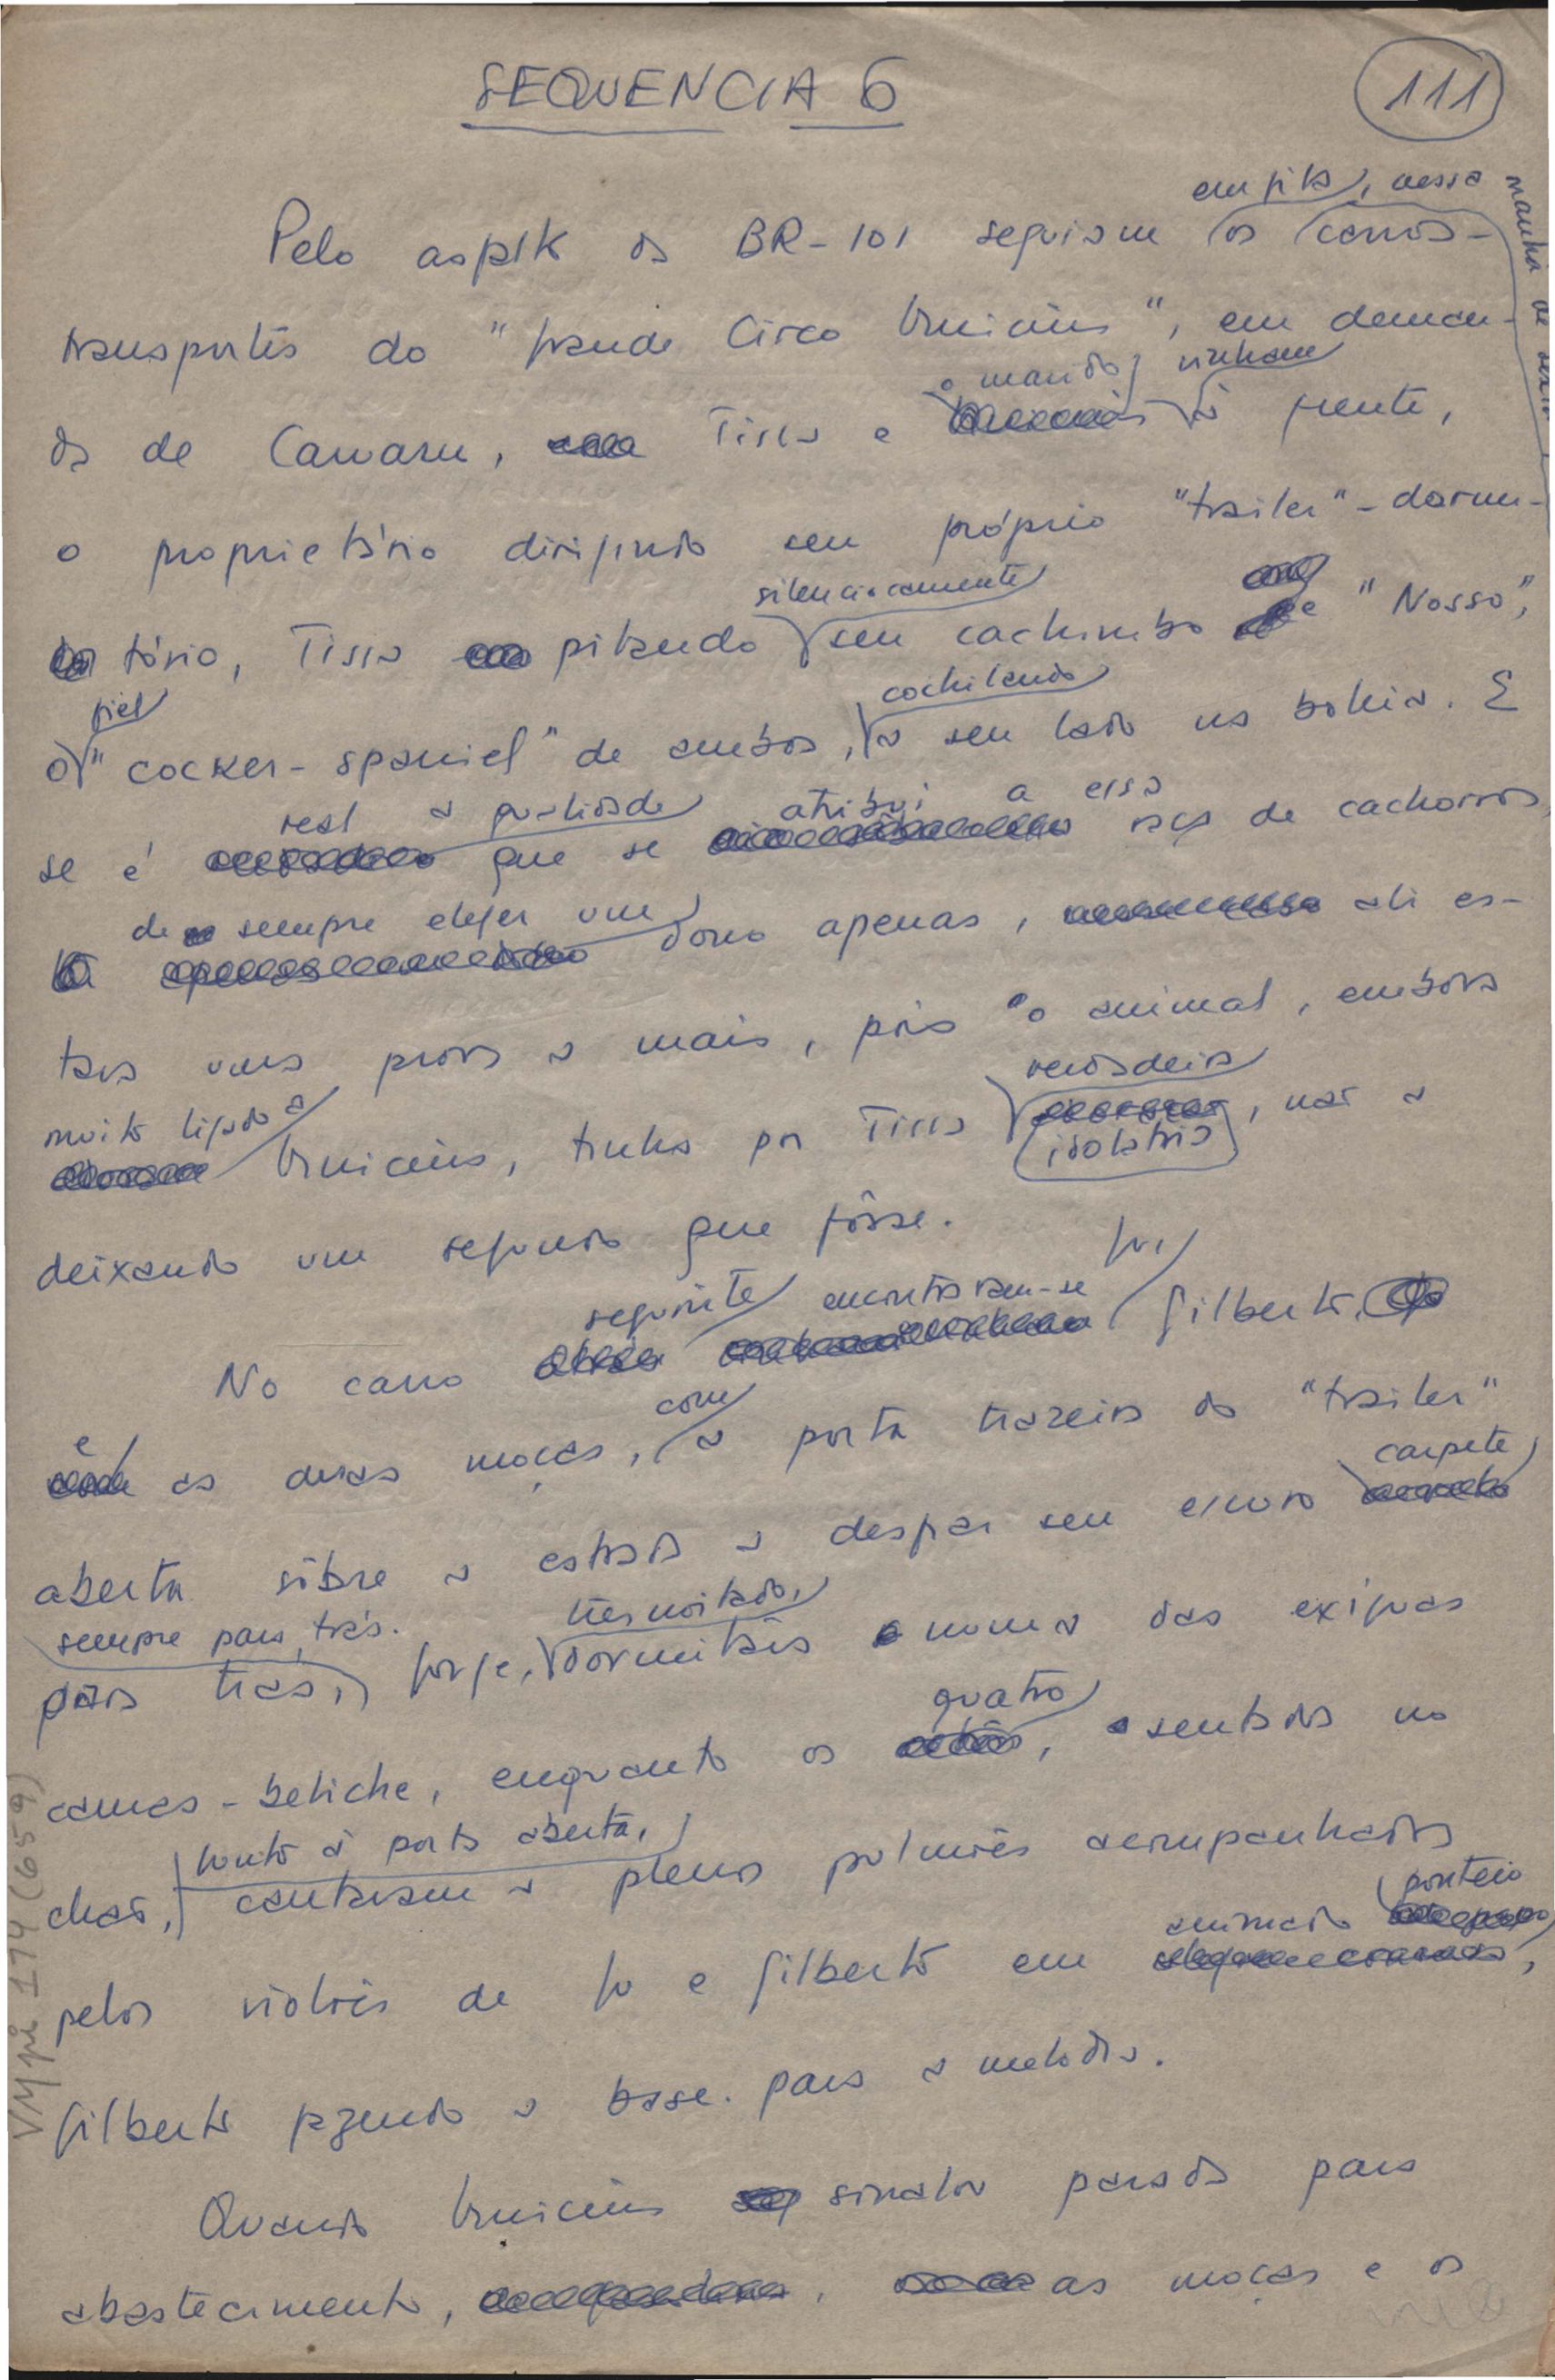 SEQUENCIA 6
111
em fila, nessa manhã de
Pelo asfalto da BR-101 seguiam os carros-
transportes do "Grande Circo Vinicius", em deman-
o marido vinham
da de Caruaru, Tisso e à frente,
o proprietário dirigindo seu próprio "trailer"-dormi-
silenciosamente
tório, Tisso pitando seu cachimbo e "Nosso",
fiel cochilando
o "cocker-spaniel" de ambos, a seu lado na boléia. E
real a qualidade atribui a essa
se é que se raça de cachorros,
de sempre eleger um
dono apenas, ali es-
tava uma prova a mais, pois o animal, embora
muito ligado a verdadeira
Vinicius, tinha por Tisso idolatria, não a
deixando um segundo que fôsse.
seguinte encontravam-se
No carro Gilberto,
e com
as duas moças, a porta trazeira do "trailer"
carpete
aberta sôbre a estrada a despejar seu escuro
sempre para trás. tresnoitado,
para trás, Jorge, dormitava numa das exíguas
quatro
camas-beliche, enquanto os, sentados no
junto à porta aberta,
chão, cantavam a plenos pulmões acompanhados
animado ponteio
pelos violões de Ju e Gilberto em,
Gilberto fazendo a base para a melodia.
Quando Vinicius sinalou parada para
abastecimento, as moças e os
VMpi 174 (659)